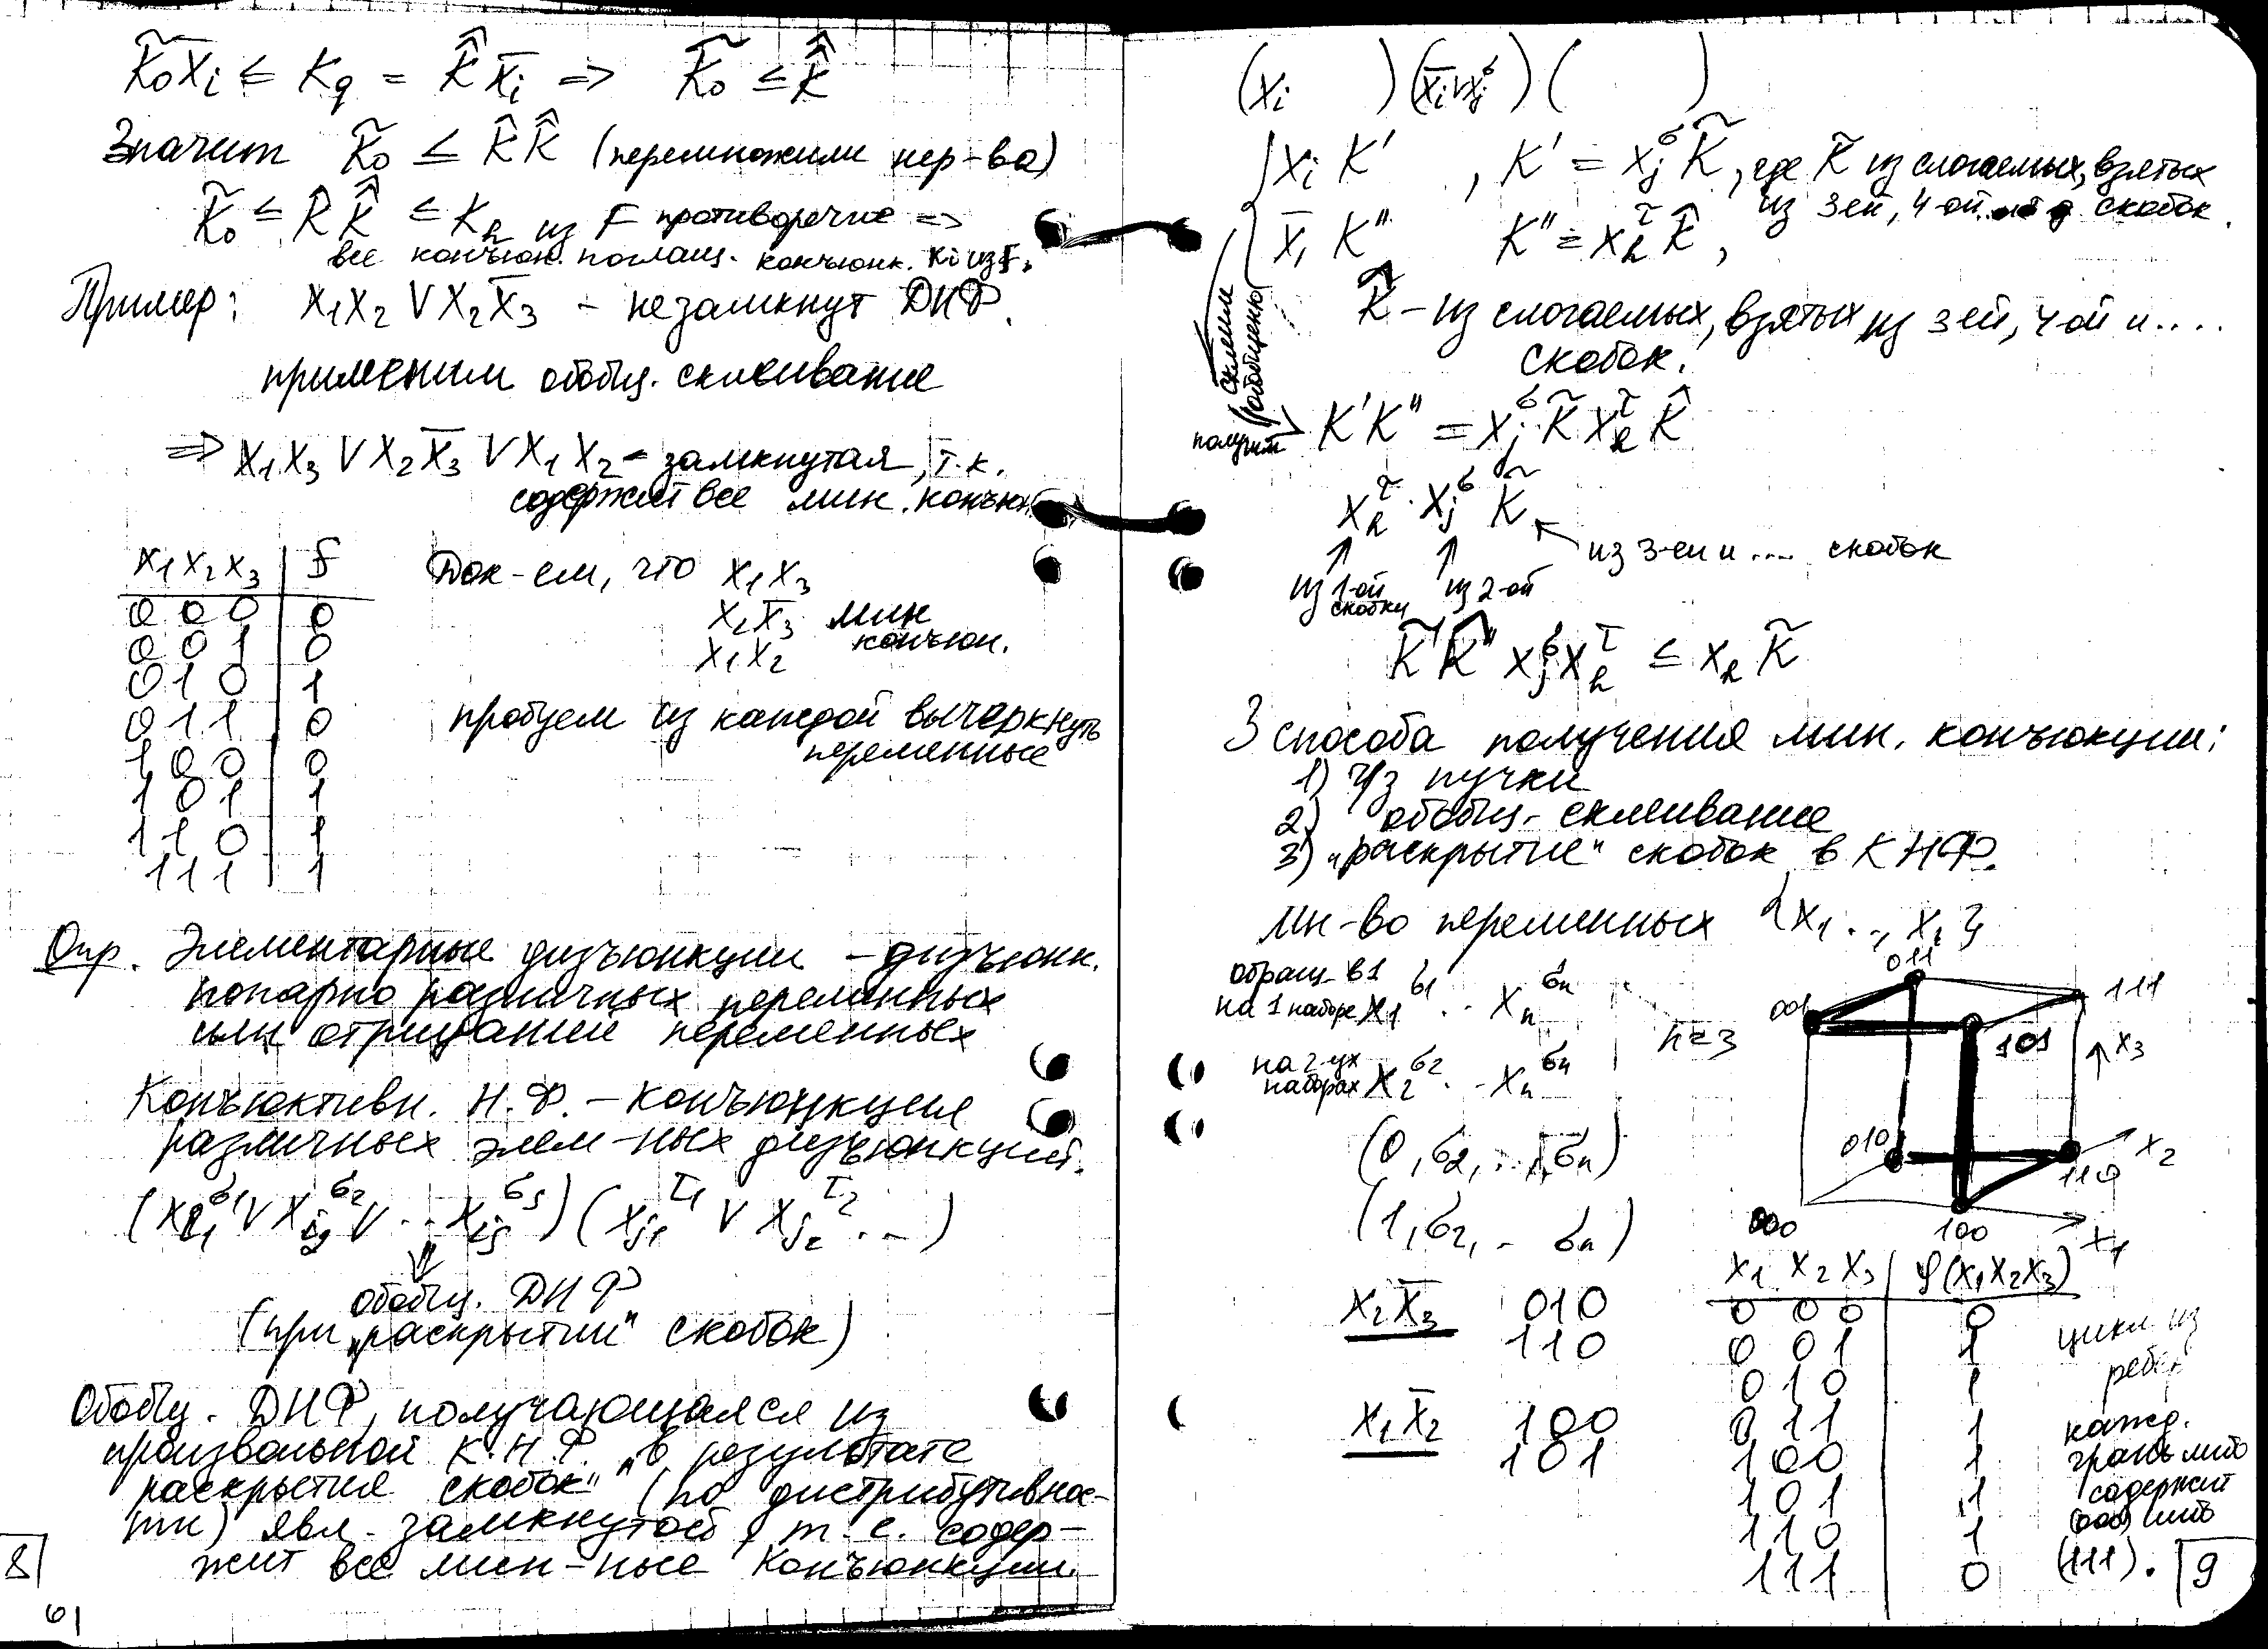 K̃₀xᵢ ≤ K_q = K̂̂ x̄ᵢ => K̃₀ ≤ K̂̂
Значит K̃₀ ≤ K̂ K̂̂ (перемножили нер-ва)
K̃₀ ≤ K̂ K̂̂ ≤ K_k из F противоречие =>
все конъюн. поглащ. конъюнк. Kᵢ из F.
Пример: x₁x₂ V x₂x̄₃ - незамкнут ДНФ.
применим обобщ. склеивание
=> x₁x₃ V x₂x̄₃ V x₁x₂ - замкнутая, т.к.
содержит все мин. конъюн.
x₁x₂x₃ | f
000 | 0
001 | 0
010 | 1
011 | 0
100 | 0
101 | 1
110 | 1
111 | 1
Док-ем, что x₁x₃
x₂x̄₃ мин
x₁x₂ конъюн.
пробуем из каждой вычеркнуть
переменные
Опр. Элементарные дизъюнкции - дизъюнк.
попарно различных переменных
или отрицаний переменных
Конъюктивн. Н.Ф. - конъюнкция
различных элем-ных дизъюнкций.
(x_{i₁}^{σ₁} V x_{i₂}^{σ₂} V ... x_{is}^{σs}) (x_{j₁}^{τ₁} V x_{j₂}^{τ₂} ...)
⇓
обобщ. ДНФ
(при „раскрытии" скобок)
Обобщ. ДНФ, получающаяся из
произвольной К.Н.Ф. в результате
„раскрытия скобок" (по дистрибутивнос-
ти) явл. замкнутой, т.е. содер-
жит все мин-ные конъюнкции.
8
61
(xᵢ ) (x̄ᵢ V xⱼ^σ) ( )
xᵢ K' , K' = xⱼ^σ K̃, где K̃ из слогаемых, взятых
из 3ей, 4-ой скобок.
x̄ᵢ K'' K'' = x_k^τ K̂,
K̂ - из слогаемых, взятых из 3ей, 4ой и ....
скобок.
склеим
обобщенно
получим K'K'' = xⱼ^σ K̃ x_k^τ K̂
x_k^τ · xⱼ^σ K̃
из 3-ей и .... скобок
из 1-ой скобки из 2-ой
K̃' K̂'' xⱼ^σ x_k^τ ≤ x_k K̃
3 способа получения мин. конъюкции:
1) ч/з пучки
2) обобщ. склеивание
3) „раскрытие" скобок в КНФ.
Мн-во переменных {x₁ .., xₙ}
обращ. в 1
на 1 наборе x₁^{σ₁} .. xₙ^{σₙ}
на 2-ух
наборах x₂^{σ₂} .. xₙ^{σₙ}
(0, σ₂, ..., σₙ)
(1, σ₂, .. σₙ)
n=3
011
001
111
101
↑ x₃
010
110
x₂
000
100
x₁
x₂x̄₃ 010
110
x₁x̄₂ 100
101
x₁ x₂ x₃ | φ(x₁x₂x₃)
0 0 0 | 0
0 0 1 | 1
0 1 0 | 1
0 1 1 | 1
1 0 0 | 1
1 0 1 | 1
1 1 0 | 1
1 1 1 | 0
цикл из
ребер
кажд.
грань либо
содержит
(000) либо
(111).
9